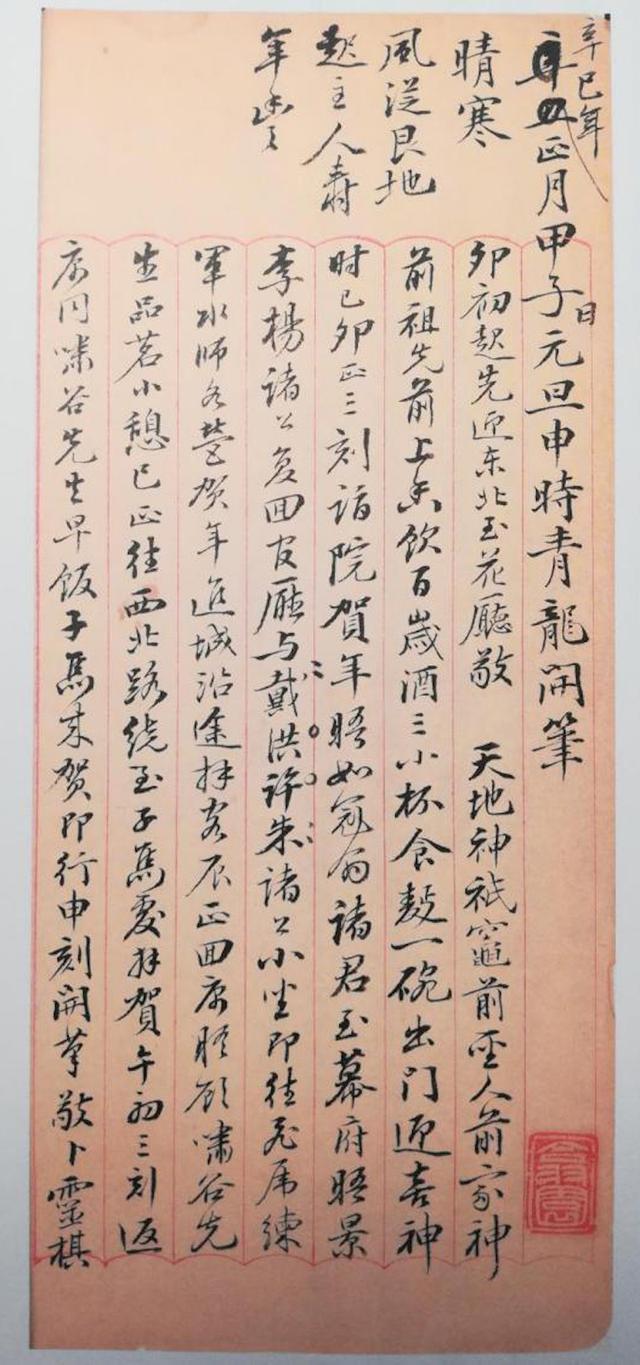 辛巳年
正月甲子日元旦申時青龍開筆
晴寒
風從艮地
起主人壽
年豐
卯初起先迎东北至花廳敬 天地神祇竈前聖人前家神
前祖先前上香飲百歲酒三小杯食麵一碗出門迎喜神
时已卯正三刻詣院賀年晤如冠翁諸君至幕府晤景
李楊諸公复回官廳与戴洪许朱諸公小坐即往飛虎練
軍水师各营贺年進城沿途拜客辰正回寓旋顧嘯谷先
生品茗小憩巳正往西北路绕至子馬處拜賀午初三刻返
寓同嘯谷先生早饭子馬来贺即行申刻開筆敬卜靈棋